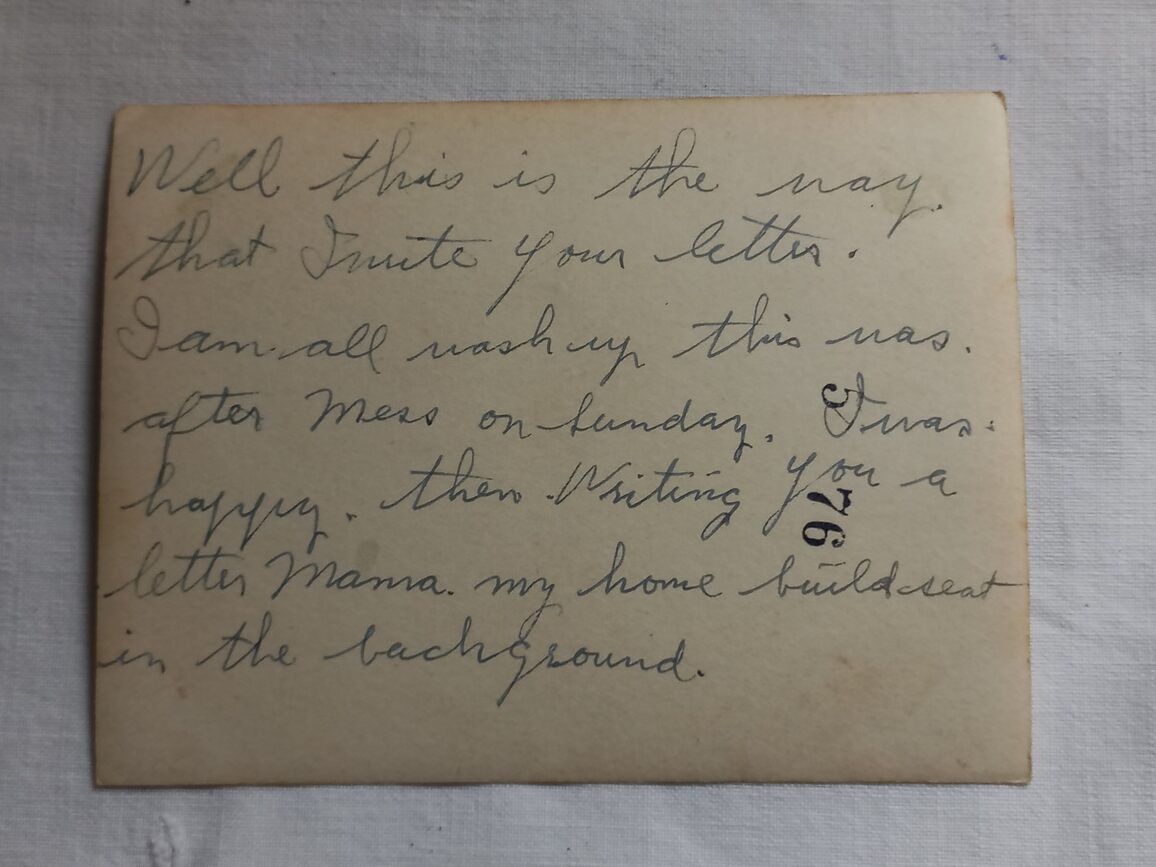 Well this is the way.
that I write your letter.
I am all wash up this was.
after Mess on Sunday. I was.
happy. then Writing you a
letter Mama. my home build seat
in the background.
5 76